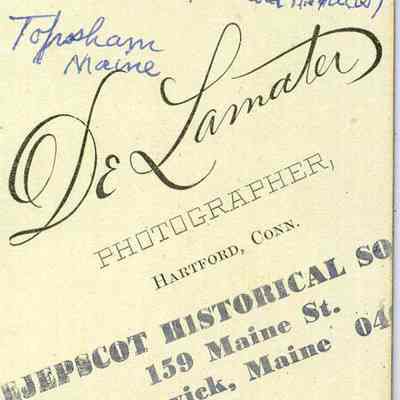 Topsham
Maine
De Lamater
PHOTOGRAPHER,
HARTFORD, CONN.
EJEPSCOT HISTORICAL SO
159 Maine St.
wick, Maine 04